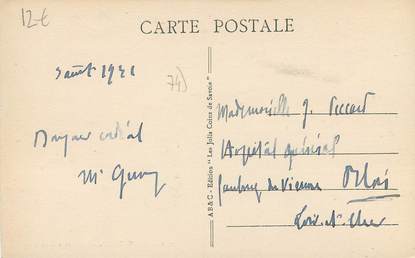 12 €
CARTE POSTALE
3 août 1941
74)
Bonjour cordial
A B & C - Edition "Les Jolis Coins de Savoie"
Mademoiselle J.
Hopital général
faubourg de Vienne Blois
Loir-et-Cher